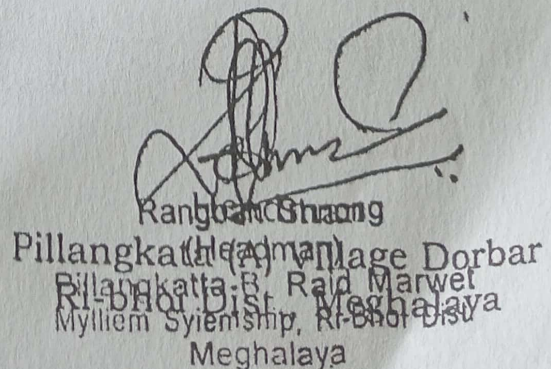 Shnong
Pillangkatta (A) Village Dorbar
(Headman)
Pillangkatta B, Raid Marwet
Ri-Bhoi Dist. Meghalaya
Mylliem Syiemship, Ri-Bhoi Dist
Meghalaya